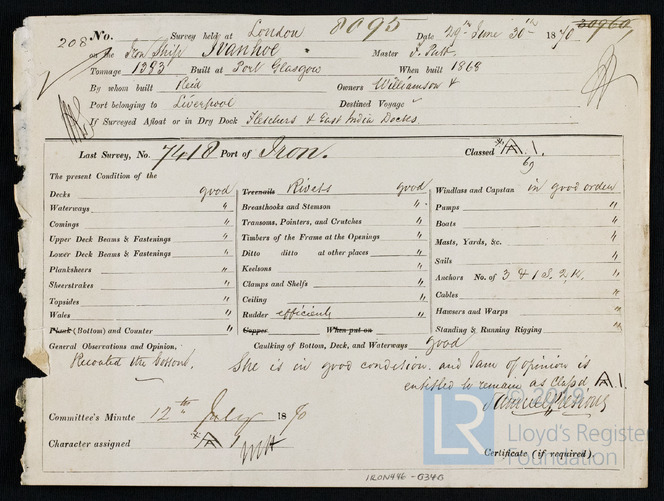 208 No. Survey held at London 8095 Date 29th June 30th 1870 30960
on the Iron Ship Ivanhoe Master
Tonnage 1383 Built at Port Glasgow When built 1868
By whom built Reid Owners Williamson &
Port belonging to Liverpool Destined Voyage
If Surveyed Afloat or in Dry Dock Fletchers & East India Docks
Last Survey, No. 7418 Port of Iron. Classed A.1.
69
The present Condition of the
Decks good
Waterways "
Comings "
Upper Deck Beams & Fastenings "
Lower Deck Beams & Fastenings "
Planksheers "
Sheerstrakes "
Topsides "
Wales "
Plank (Bottom) and Counter "
Treenails Rivets good
Breasthooks and Stemson "
Transoms, Pointers, and Crutches "
Timbers of the Frame at the Openings "
Ditto ditto at other places "
Keelsons "
Clamps and Shelfs "
Ceiling "
Rudder efficient "
Copper When put on
Windlass and Capstan in good order
Pumps "
Boats "
Masts, Yards, &c. "
Sails "
Anchors No. of 3 & 1 S. 2 K. "
Cables "
Hawsers and Warps "
Standing & Running Rigging "
General Observations and Opinion, Caulking of Bottom, Deck, and Waterways good
Recoated the Bottom. She is in good condition and I am of opinion is
entitled to remain as class'd A.1.
Samuel
Committee's Minute 12th July 1870
Character assigned A 1
Certificate (if required).
© 2019
LR Lloyd's Register
Foundation
IRON446-0340